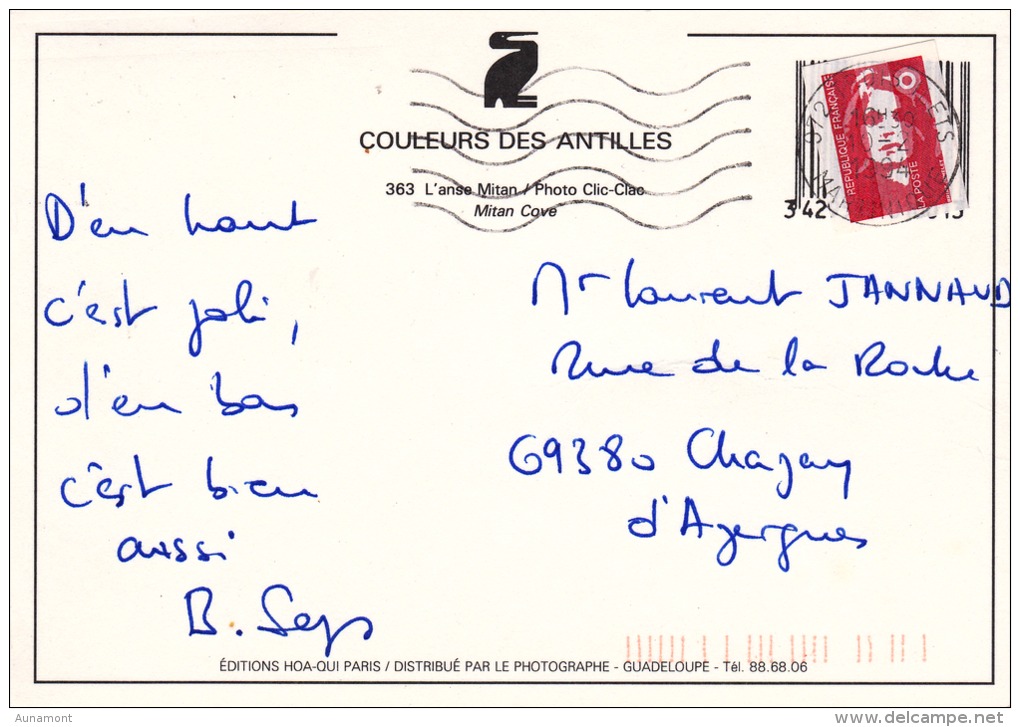 COULEURS DES ANTILLES
363 L'anse Mitan / Photo Clic-Clac
Mitan Cove
RÉPUBLIQUE FRANÇAISE
LA POSTE
1994
3 42
D'en haut
c'est joli,
d'en bas
c'est bien
aussi
Mr Laurent JANNAUD
Rue de la Roche
69380 Chazay
d'Azergues
ÉDITIONS HOA-QUI PARIS / DISTRIBUÉ PAR LE PHOTOGRAPHE - GUADELOUPE - Tél. 88.68.06
Aunamont
delcampe.net